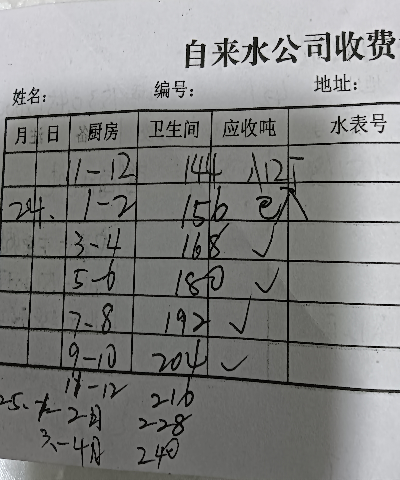 自来水公司收费
姓名: 编号: 地址:
月 日 厨房 卫生间 应收吨 水表号
11-12 144
24. 1-2 156
3-4 168 ✓
5-6 180 ✓
7-8 192 ✓
9-10 204 ✓
11-12 216
25. 2月 228
3-4月 240